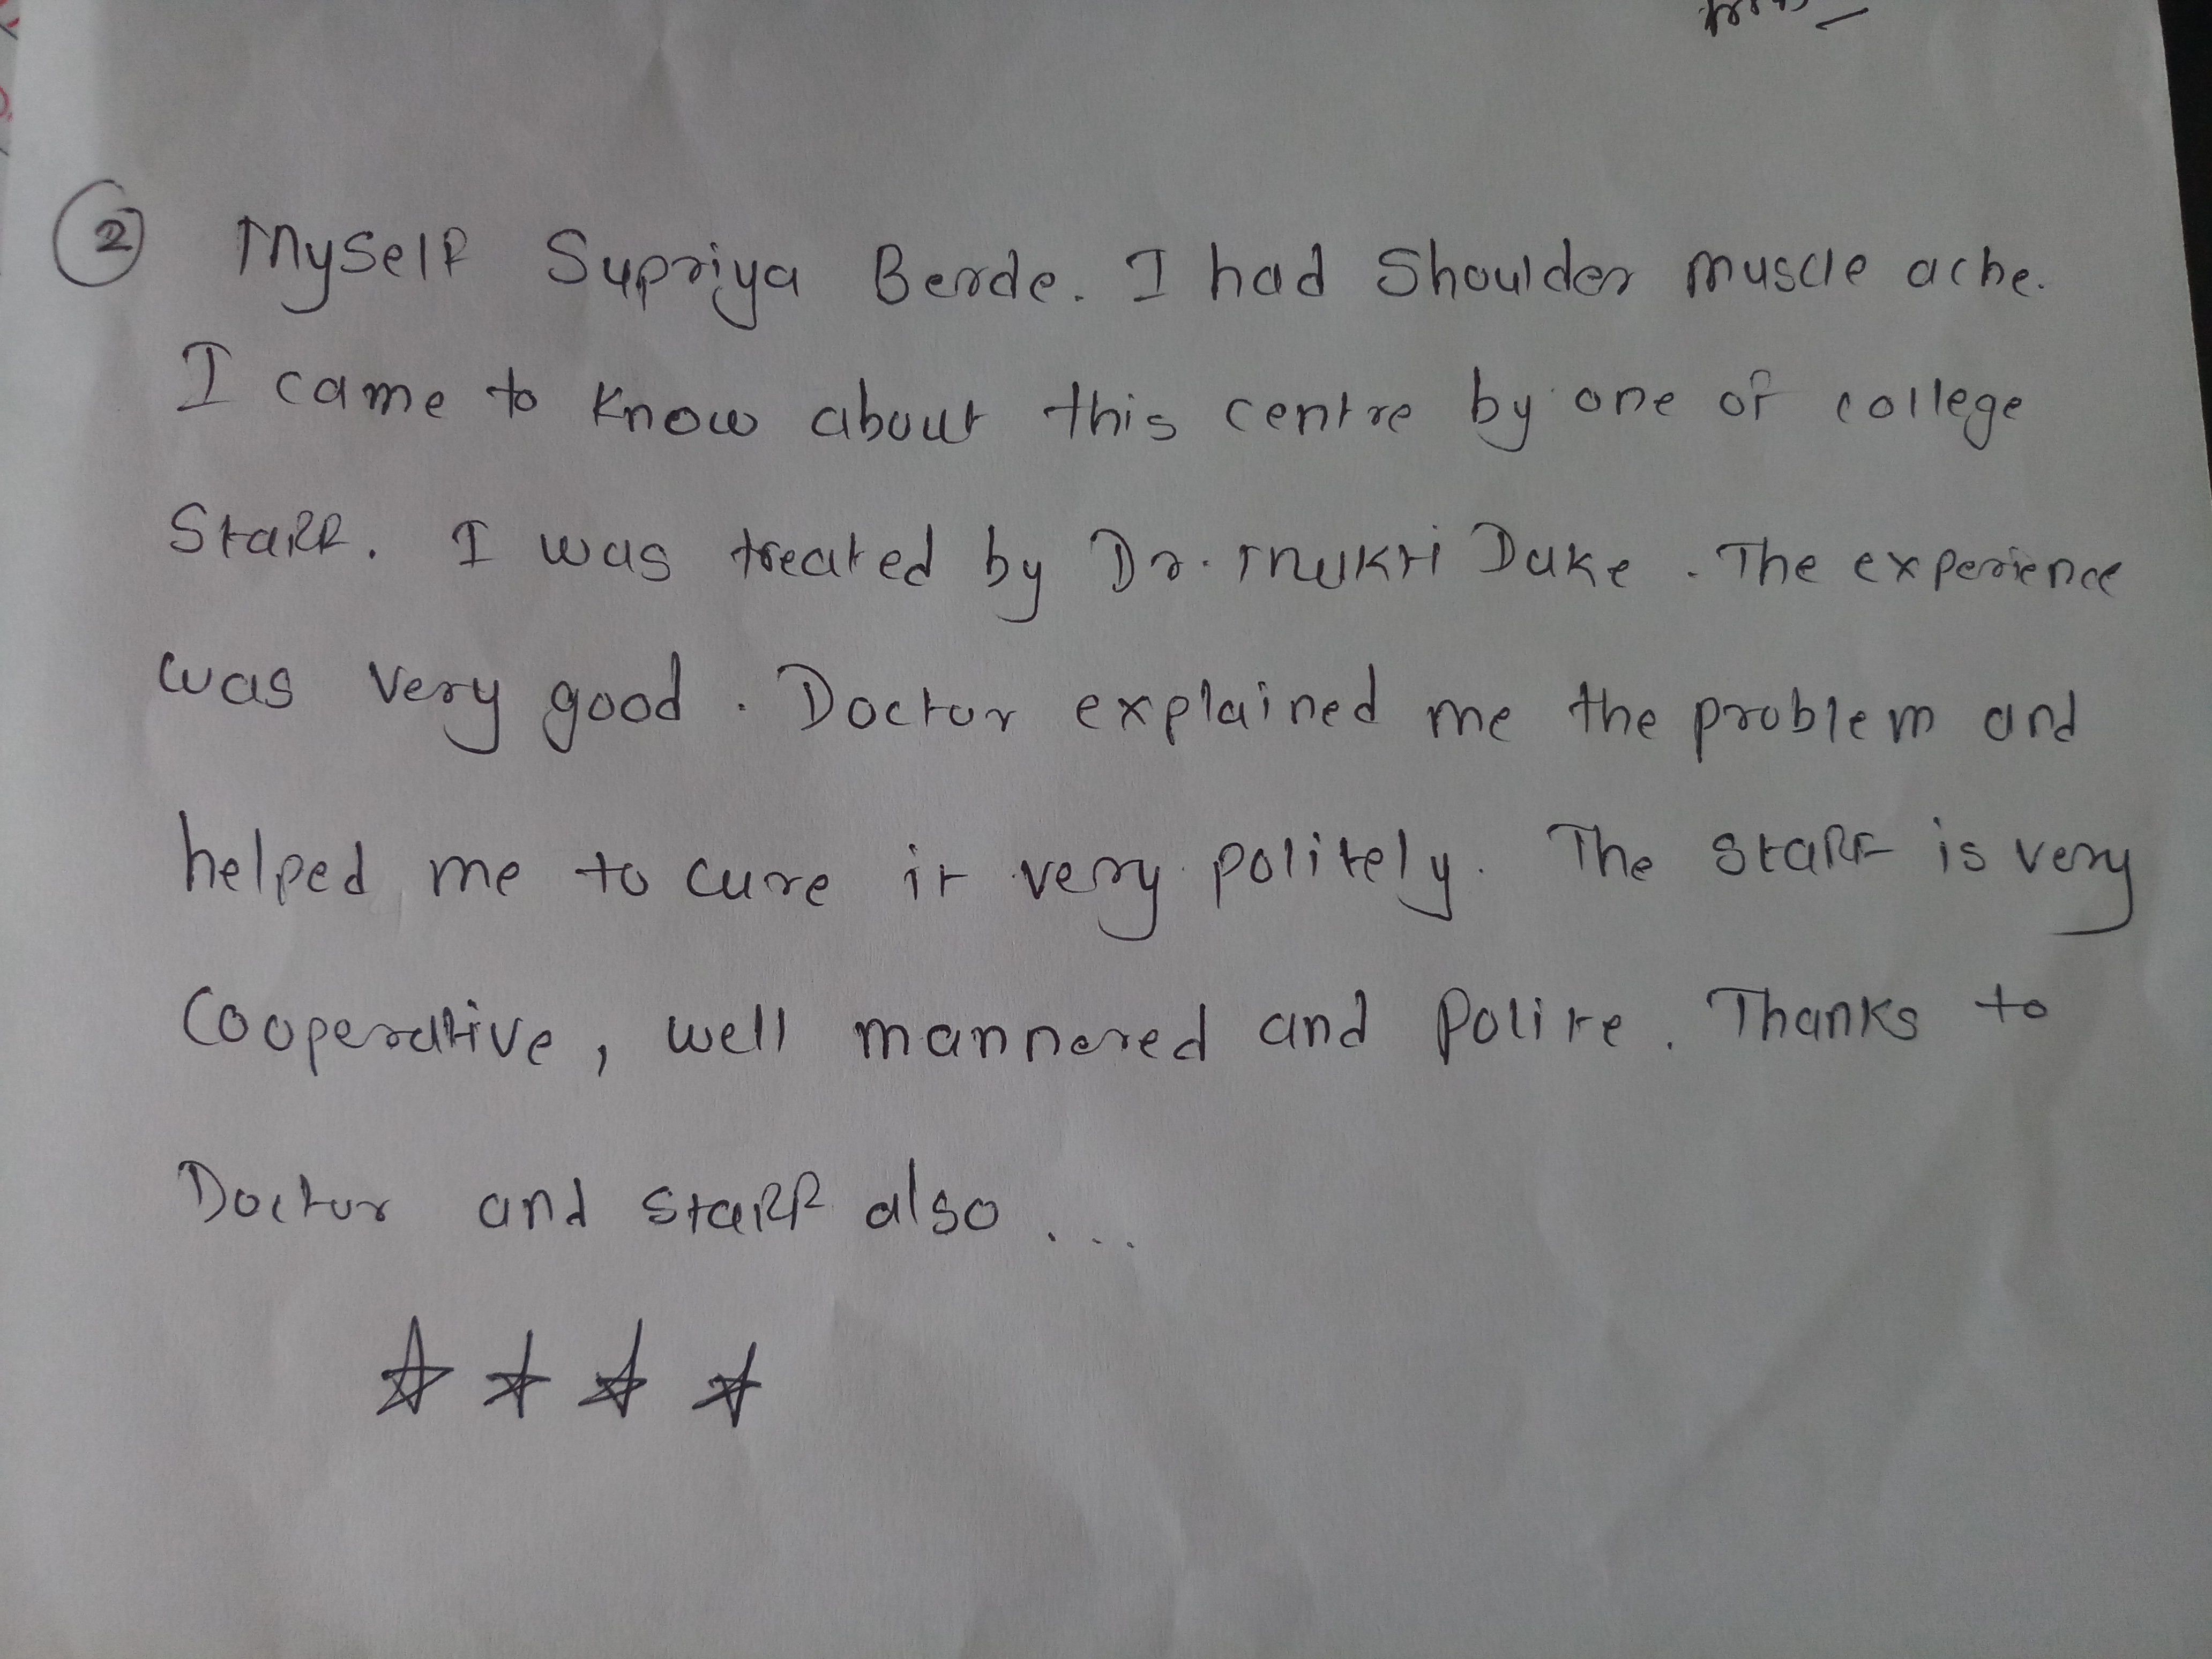 ② Myself Supriya Berde. I had Shoulder muscle ache.
I came to know about this centre by one of college
Staff. I was treated by Dr. Mukti Dake. The experience
was very good. Doctor explained me the problem and
helped me to cure it very politely. The staff is very
Cooperative, well mannered and Polite. Thanks to
Doctor and staff also...
☆☆☆☆